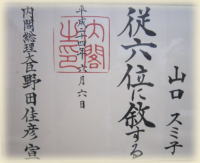 山口スミ子
従六位に敘する
平成二十四年六月六日
内閣之印
内閣総理大臣野田佳彦宣